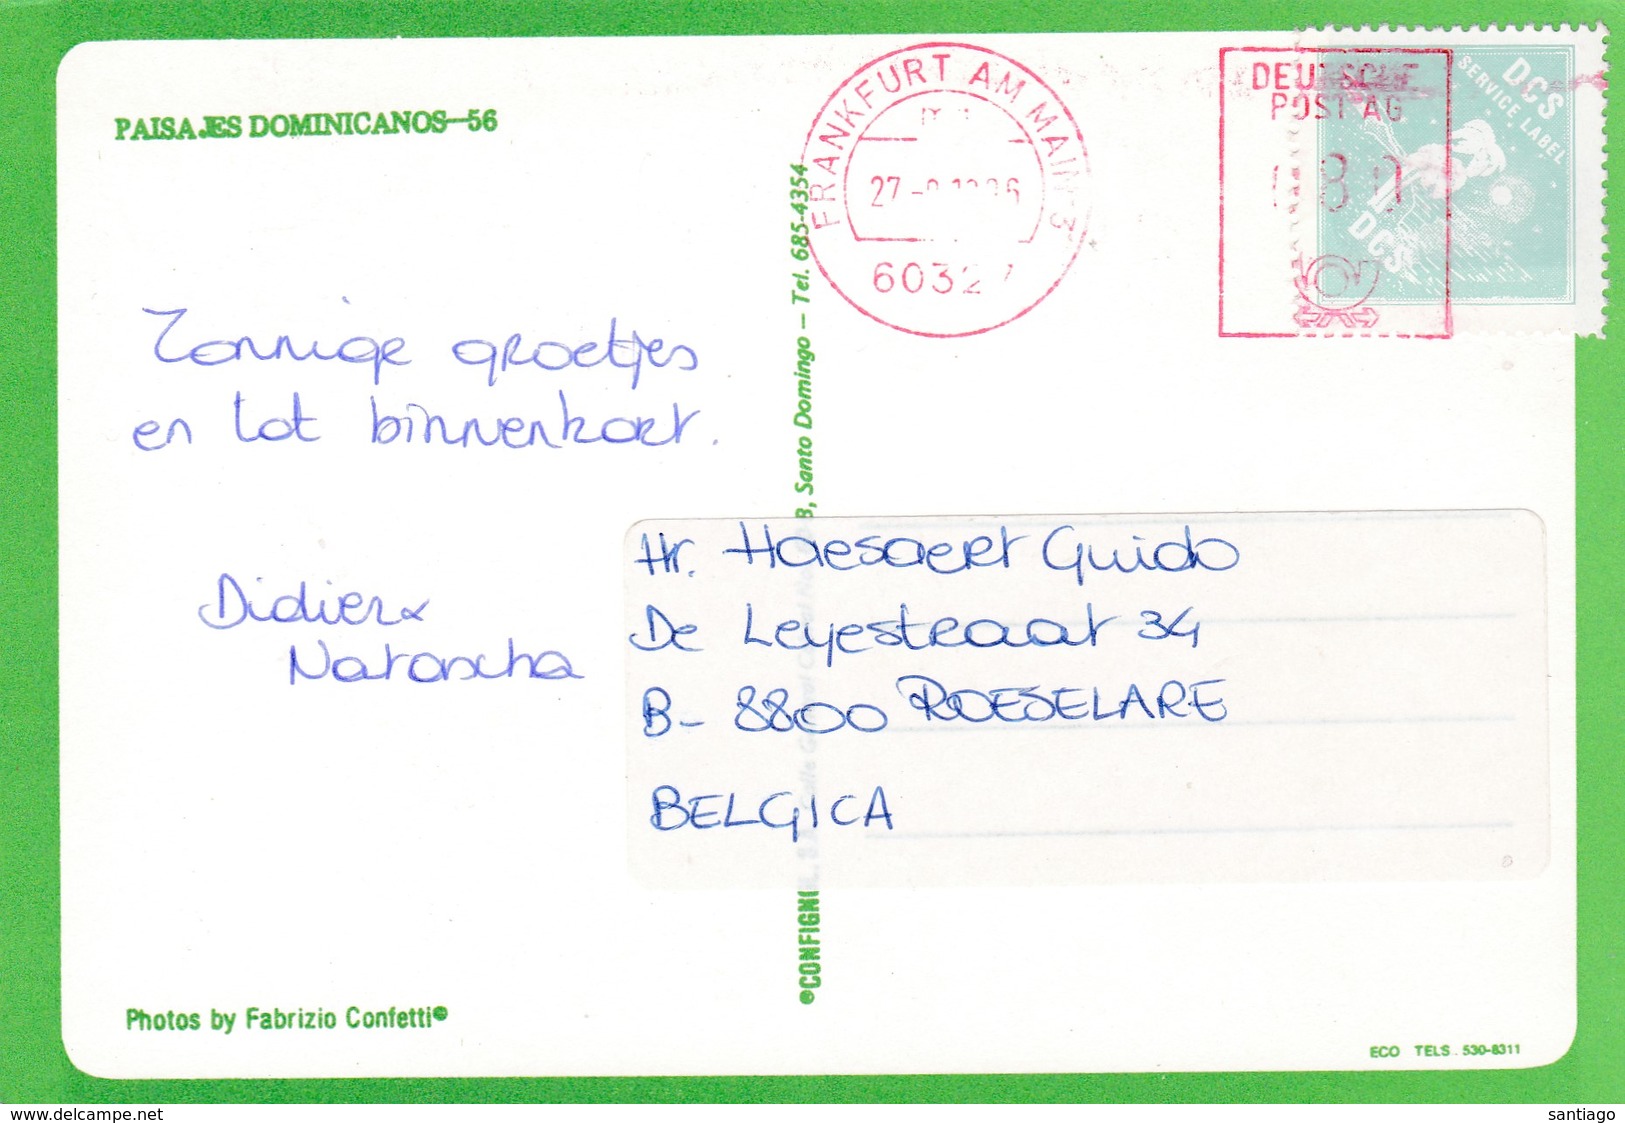 PAISAJES DOMINICANOS—56
FRANKFURT AM MAIN 3
60327
DEUTSCHE
POST AG
DCS
SERVICE LABEL
DCS
Zonnige groetjes
en tot binnenkort.
Didier &
Natascha
, Santo Domingo — Tel. 685-4354
Hr. Haesaert Guido
De Leyestraat 34
B- 8800 ROESELARE
BELGICA
Photos by Fabrizio Confetti©
ECO TELS. 530-8311
www.delcampe.net
santiago